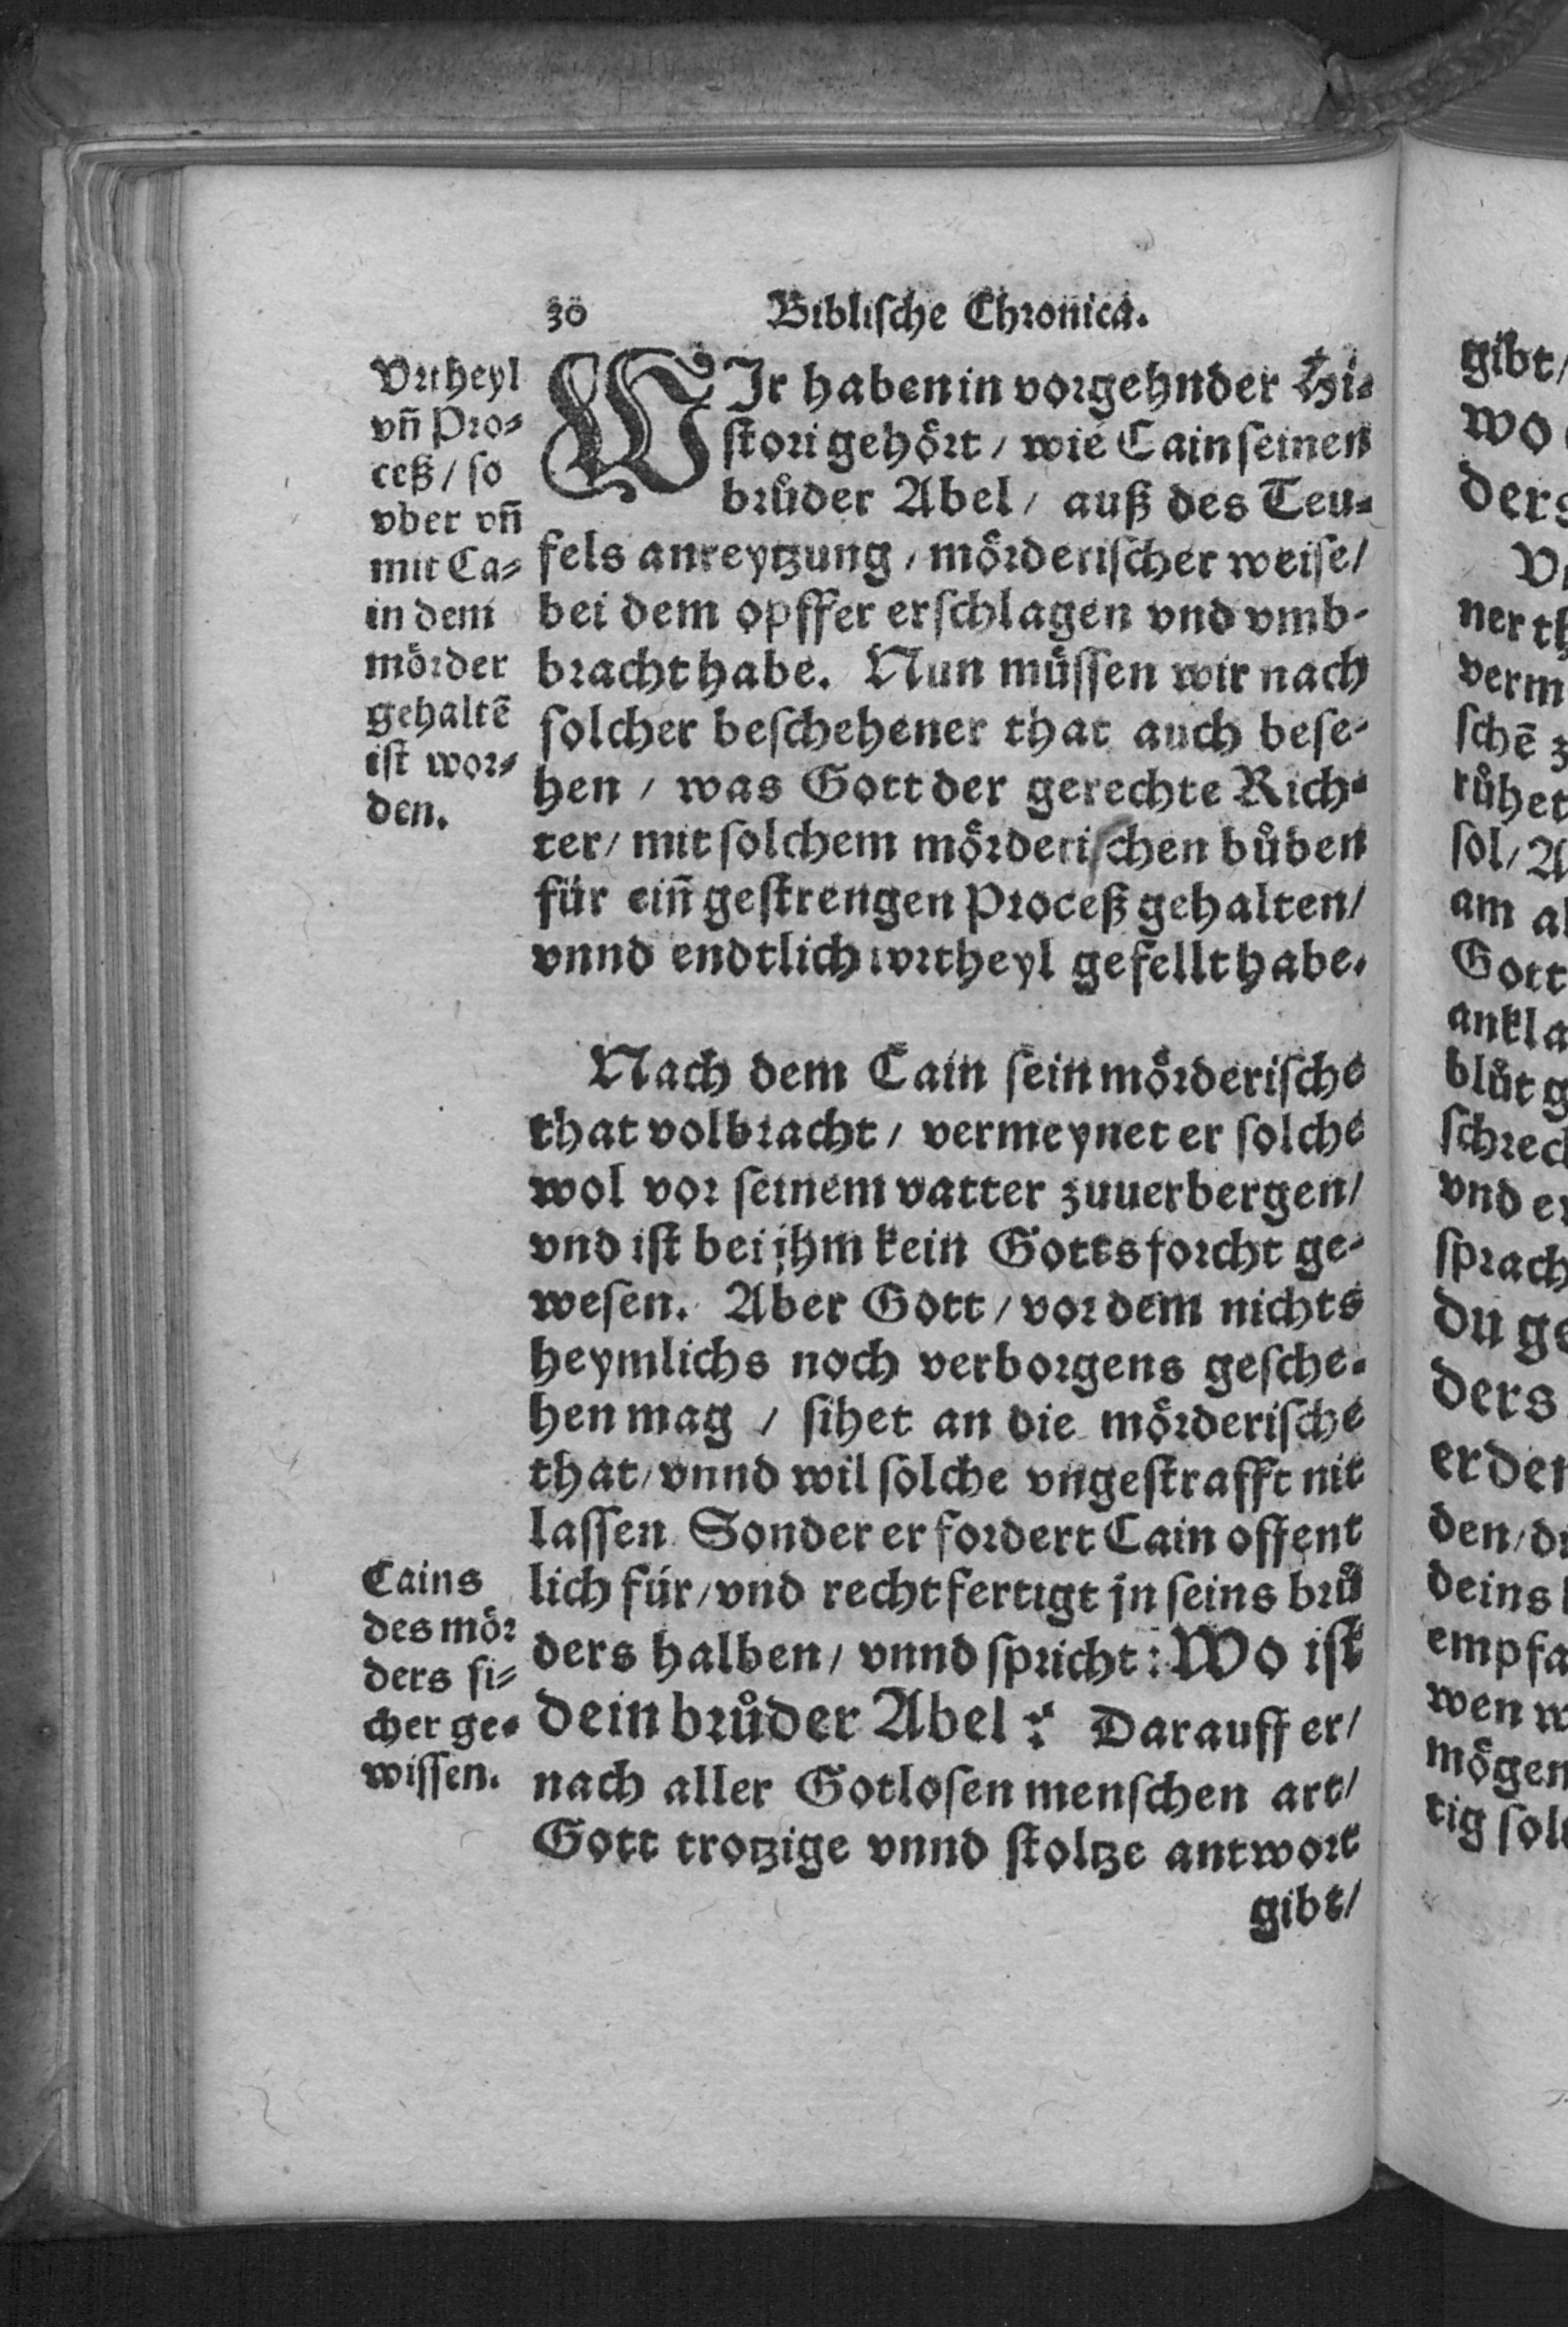 30 Biblische Chronica.
Vrtheyl
vñ Pro-
ceß / so
vber vñ
mit Ca-
in dem
mörder
gehaltẽ
ist wor-
den.
WIr haben in vorgehnder Hi-
stori gehört / wie Cain seinen
brůder Abel / auß des Teu-
fels anreytzung / mörderischer weise /
bei dem opffer erschlagen vnd vmb-
bracht habe. Nun müssen wir nach
solcher beschehener that auch bese-
hen / was Gott der gerechte Rich-
ter / mit solchem mörderischen bůben
für eiñ gestrengen Proceß gehalten /
vnnd endtlich vrtheyl gefellt habe.
Nach dem Cain sein mörderische
that volbracht / vermeynet er solche
wol vor seinem vatter zuuerbergen /
vnd ist bei jhm kein Gottsforcht ge-
wesen. Aber Gott / vor dem nichts
heymlichs noch verborgens gesche-
hen mag / sihet an die mörderische
that / vnnd wil solche vngestrafft nit
lassen Sonder er fordert Cain offent
lich für / vnd rechtfertigt jn seins brů
ders halben / vnnd spricht: Wo ist
dein brůder Abel? Darauff er /
nach aller Gotlosen menschen art /
Gott trotzige vnnd stoltze antwort
gibt /
Cains
des mör
ders si-
cher ge-
wissen.
gibt /
wo
ders
ner
verm
schẽ
růhet
sol / A
am
Gott
ankla
blůt g
schreck
vnd er
sprach
du ge
ders
erden
den / d
deins
empfa
wen w
mögen
tig solt